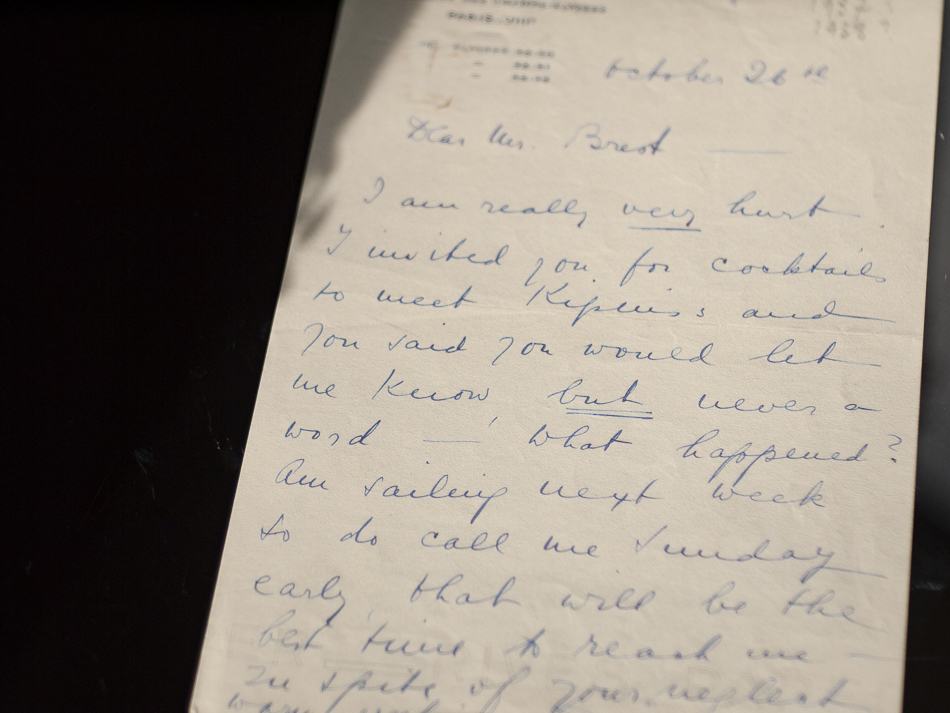 PARIS-VIIIe
October 26th
Dear Mr. Brest —
I am really very hurt
I invited you for cocktails
to meet Kipnis and
you said you would let
me know but never a
word — what happened?
Am sailing next week
so do call me Sunday
early, that will be the
best time to reach me —
In spite of your neglect